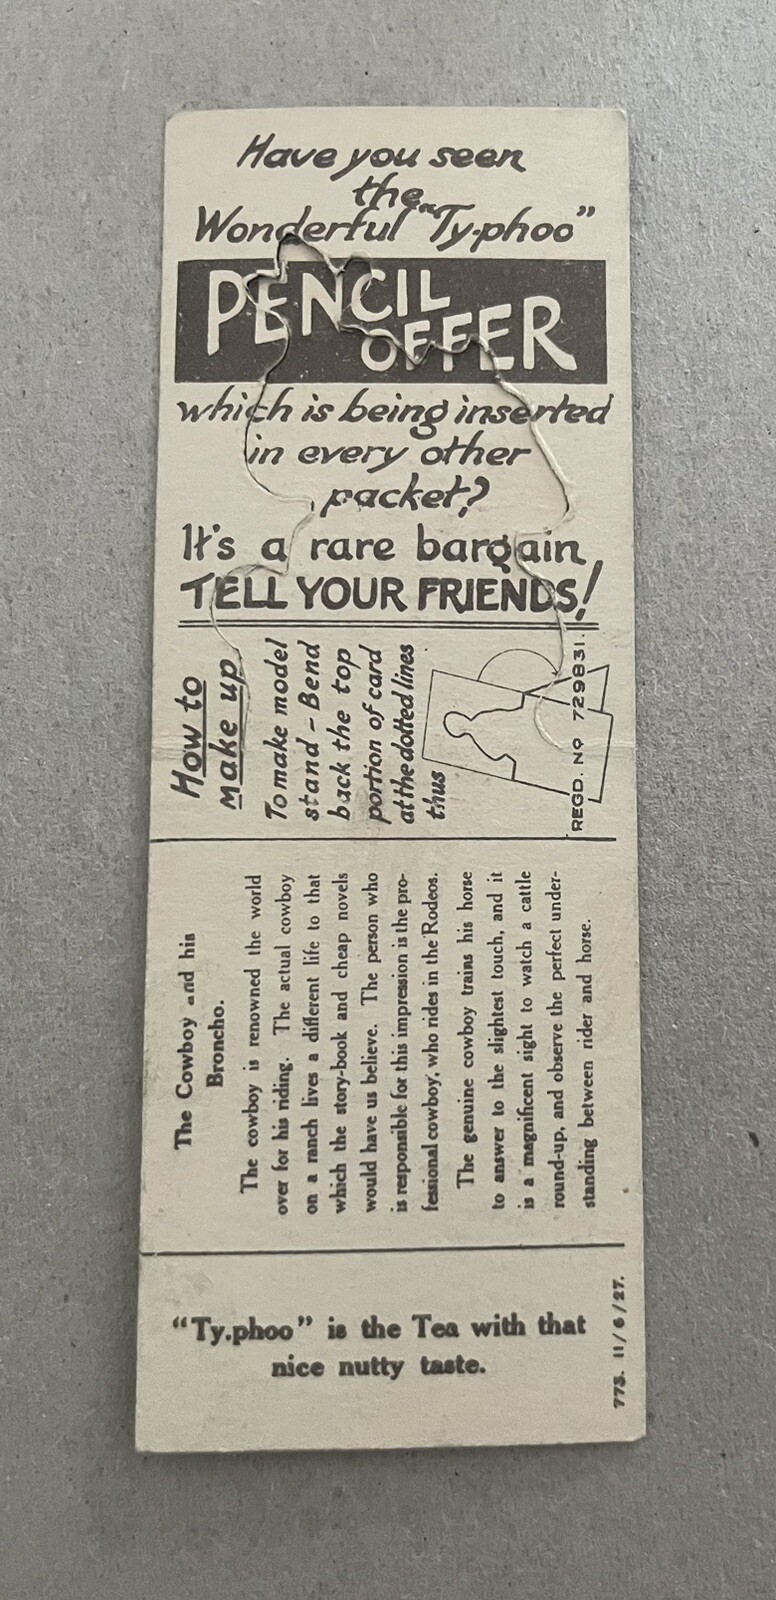 Have you seen
the
Wonderful "Ty·phoo"
PENCIL
OFFER
which is being inserted
in every other
packet?
It's a rare bargain
TELL YOUR FRIENDS!
How to
Make up
To make model
stand - Bend
back the top
portion of card
at the dotted lines
thus
REGD. No 729831.
The Cowboy and his
Broncho.
The cowboy is renowned the world
over for his riding. The actual cowboy
on a ranch lives a different life to that
which the story-book and cheap novels
would have us believe. The person who
is responsible for this impression is the pro-
fessional cowboy, who rides in the Rodeos.
The genuine cowboy trains his horse
to answer to the slightest touch, and it
is a magnificent sight to watch a cattle
round-up, and observe the perfect under-
standing between rider and horse.
"Ty.phoo" is the Tea with that
nice nutty taste.
773. 11/6/27.